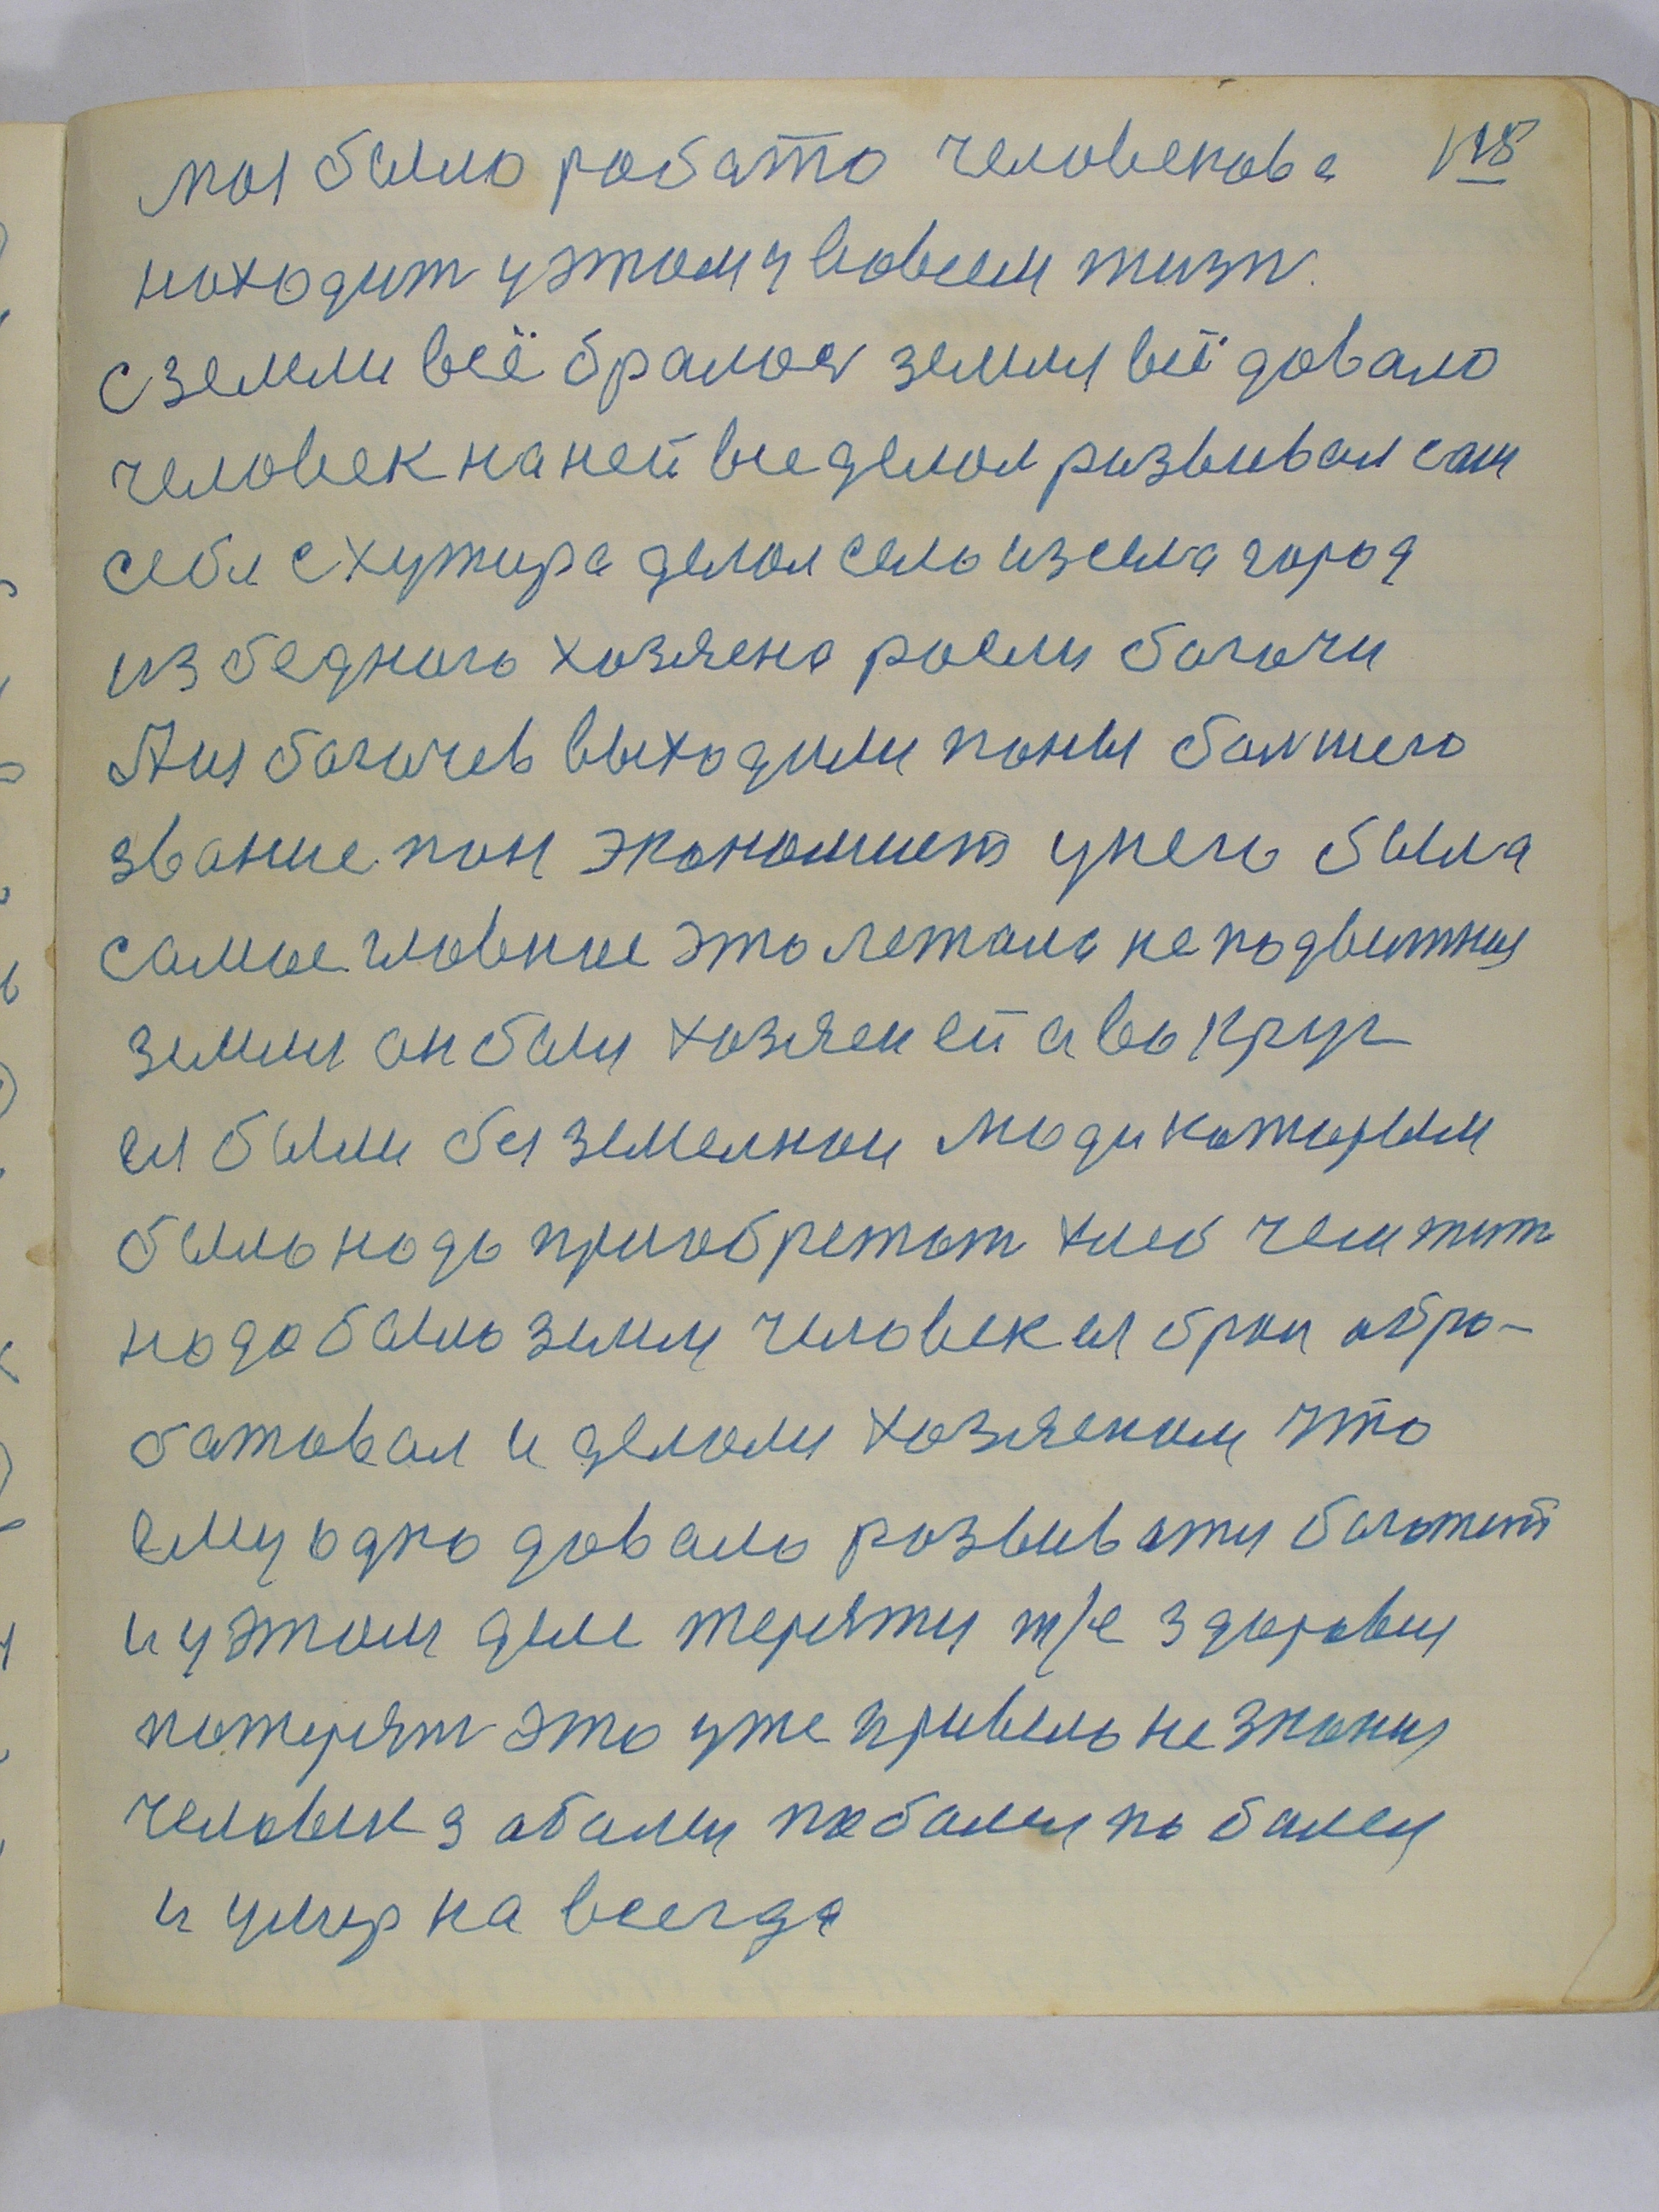 кая было робато человекова 128
находит у этому вовсем жизн.
с земли всё бралося земля всё довало
человек на ней все делал развивал сам
себя с хутира делал село из села город
из бедного хозяена росли богачи
А из богачев выходили паны болшего
звание пан экономист у него была
самое главное это лежала не подвижная
земля он бал хозяен ей а вокруг
ея были без земелнои люди каторым
было надо приобретат хлеб чем жит
надо было земли человек ея брал обра-
батовал и делали хозяеном что
ему одно давало развивати богатит
и у этом деле теряти т/е здоровия
потерят это уже привело не знания
человек заболел поболел поболел
и умер на всегда